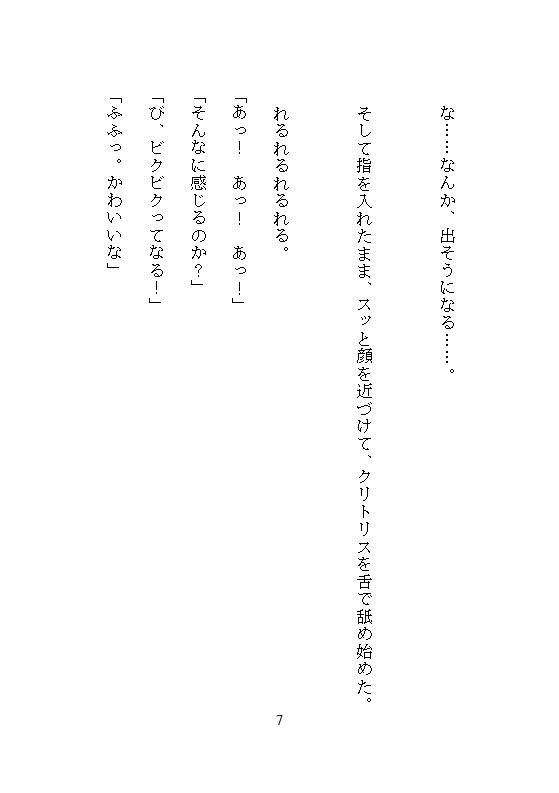 な……なんか、出そうになる……。
そして指を入れたまま、スッと顔を近づけて、クリトリスを舌で舐め始めた。
れるれるれるれる。
「あっ！　あっ！　あっ！」
「そんなに感じるのか？」
「び、ビクビクってなる！」
「ふふっ。かわいいな」
7